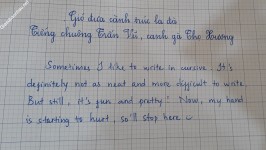 Gió đưa cành trúc la đà
Tiếng chuông Trấn Vũ, canh gà Thọ Xương
Sometimes I like to write in cursive. It's
definitely not as neat and more difficult to write.
But still, it's fun and pretty! Now, my hand
is starting to hurt, so I'll stop here